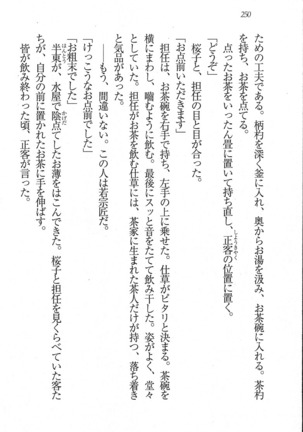 250
ための工夫である。柄杓を深く釜に入れ、奥からお湯を汲み、お茶碗に入れる。茶杓
を持ち、お茶を点てる。
点ったお茶をいったん畳に置いて持ち直し、正客の位置に置く。
「どうぞ」
桜子と、担任の目と目が合った。
「お点前いただきます」
担任は、お茶碗を右手で持ち、左手の上に乗せた。仕草がピタリと決まる。茶碗を
横にまわし、嚙むように飲む。最後にスッと音をたてて飲み干した。姿がよく、堂々
としていた。担任がお茶を飲む仕草には、茶家に生まれた茶人だけが持つ、落ち着き
と気品があった。
――もう、間違いない。この人は若宗匠だ。
「けっこうなお点前でした」
「お粗末でした」
半東が、水屋で陰点てしたお薄をはこんできた。桜子と担任を見くらべていた客た
ちが、自分の前に置かれたお茶に手を伸ばす。
皆が飲み終わった頃、正客が言った。